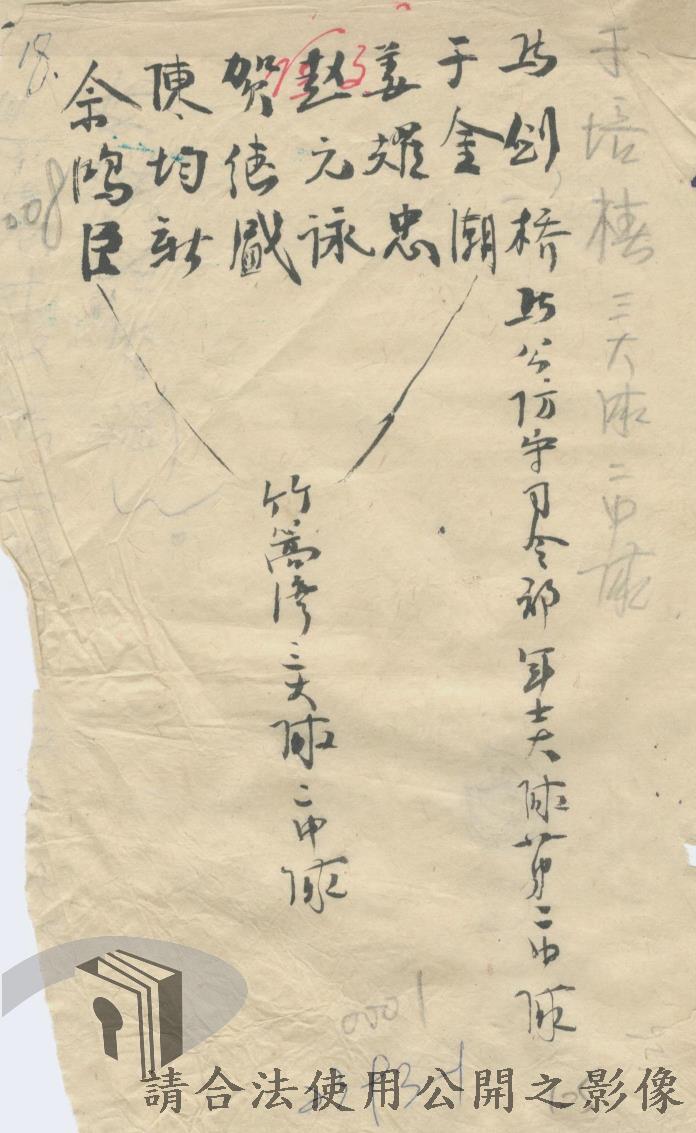 于培椿 三大隊二中隊
馬劍橋 馬公防守司令部軍士大隊第二中隊
于金潮
姜耀忠
趙元詠
賀德盛
陳均新
佘鴻臣
竹篙灣三大隊二中隊
18.
008
0001
請合法使用公開之影像